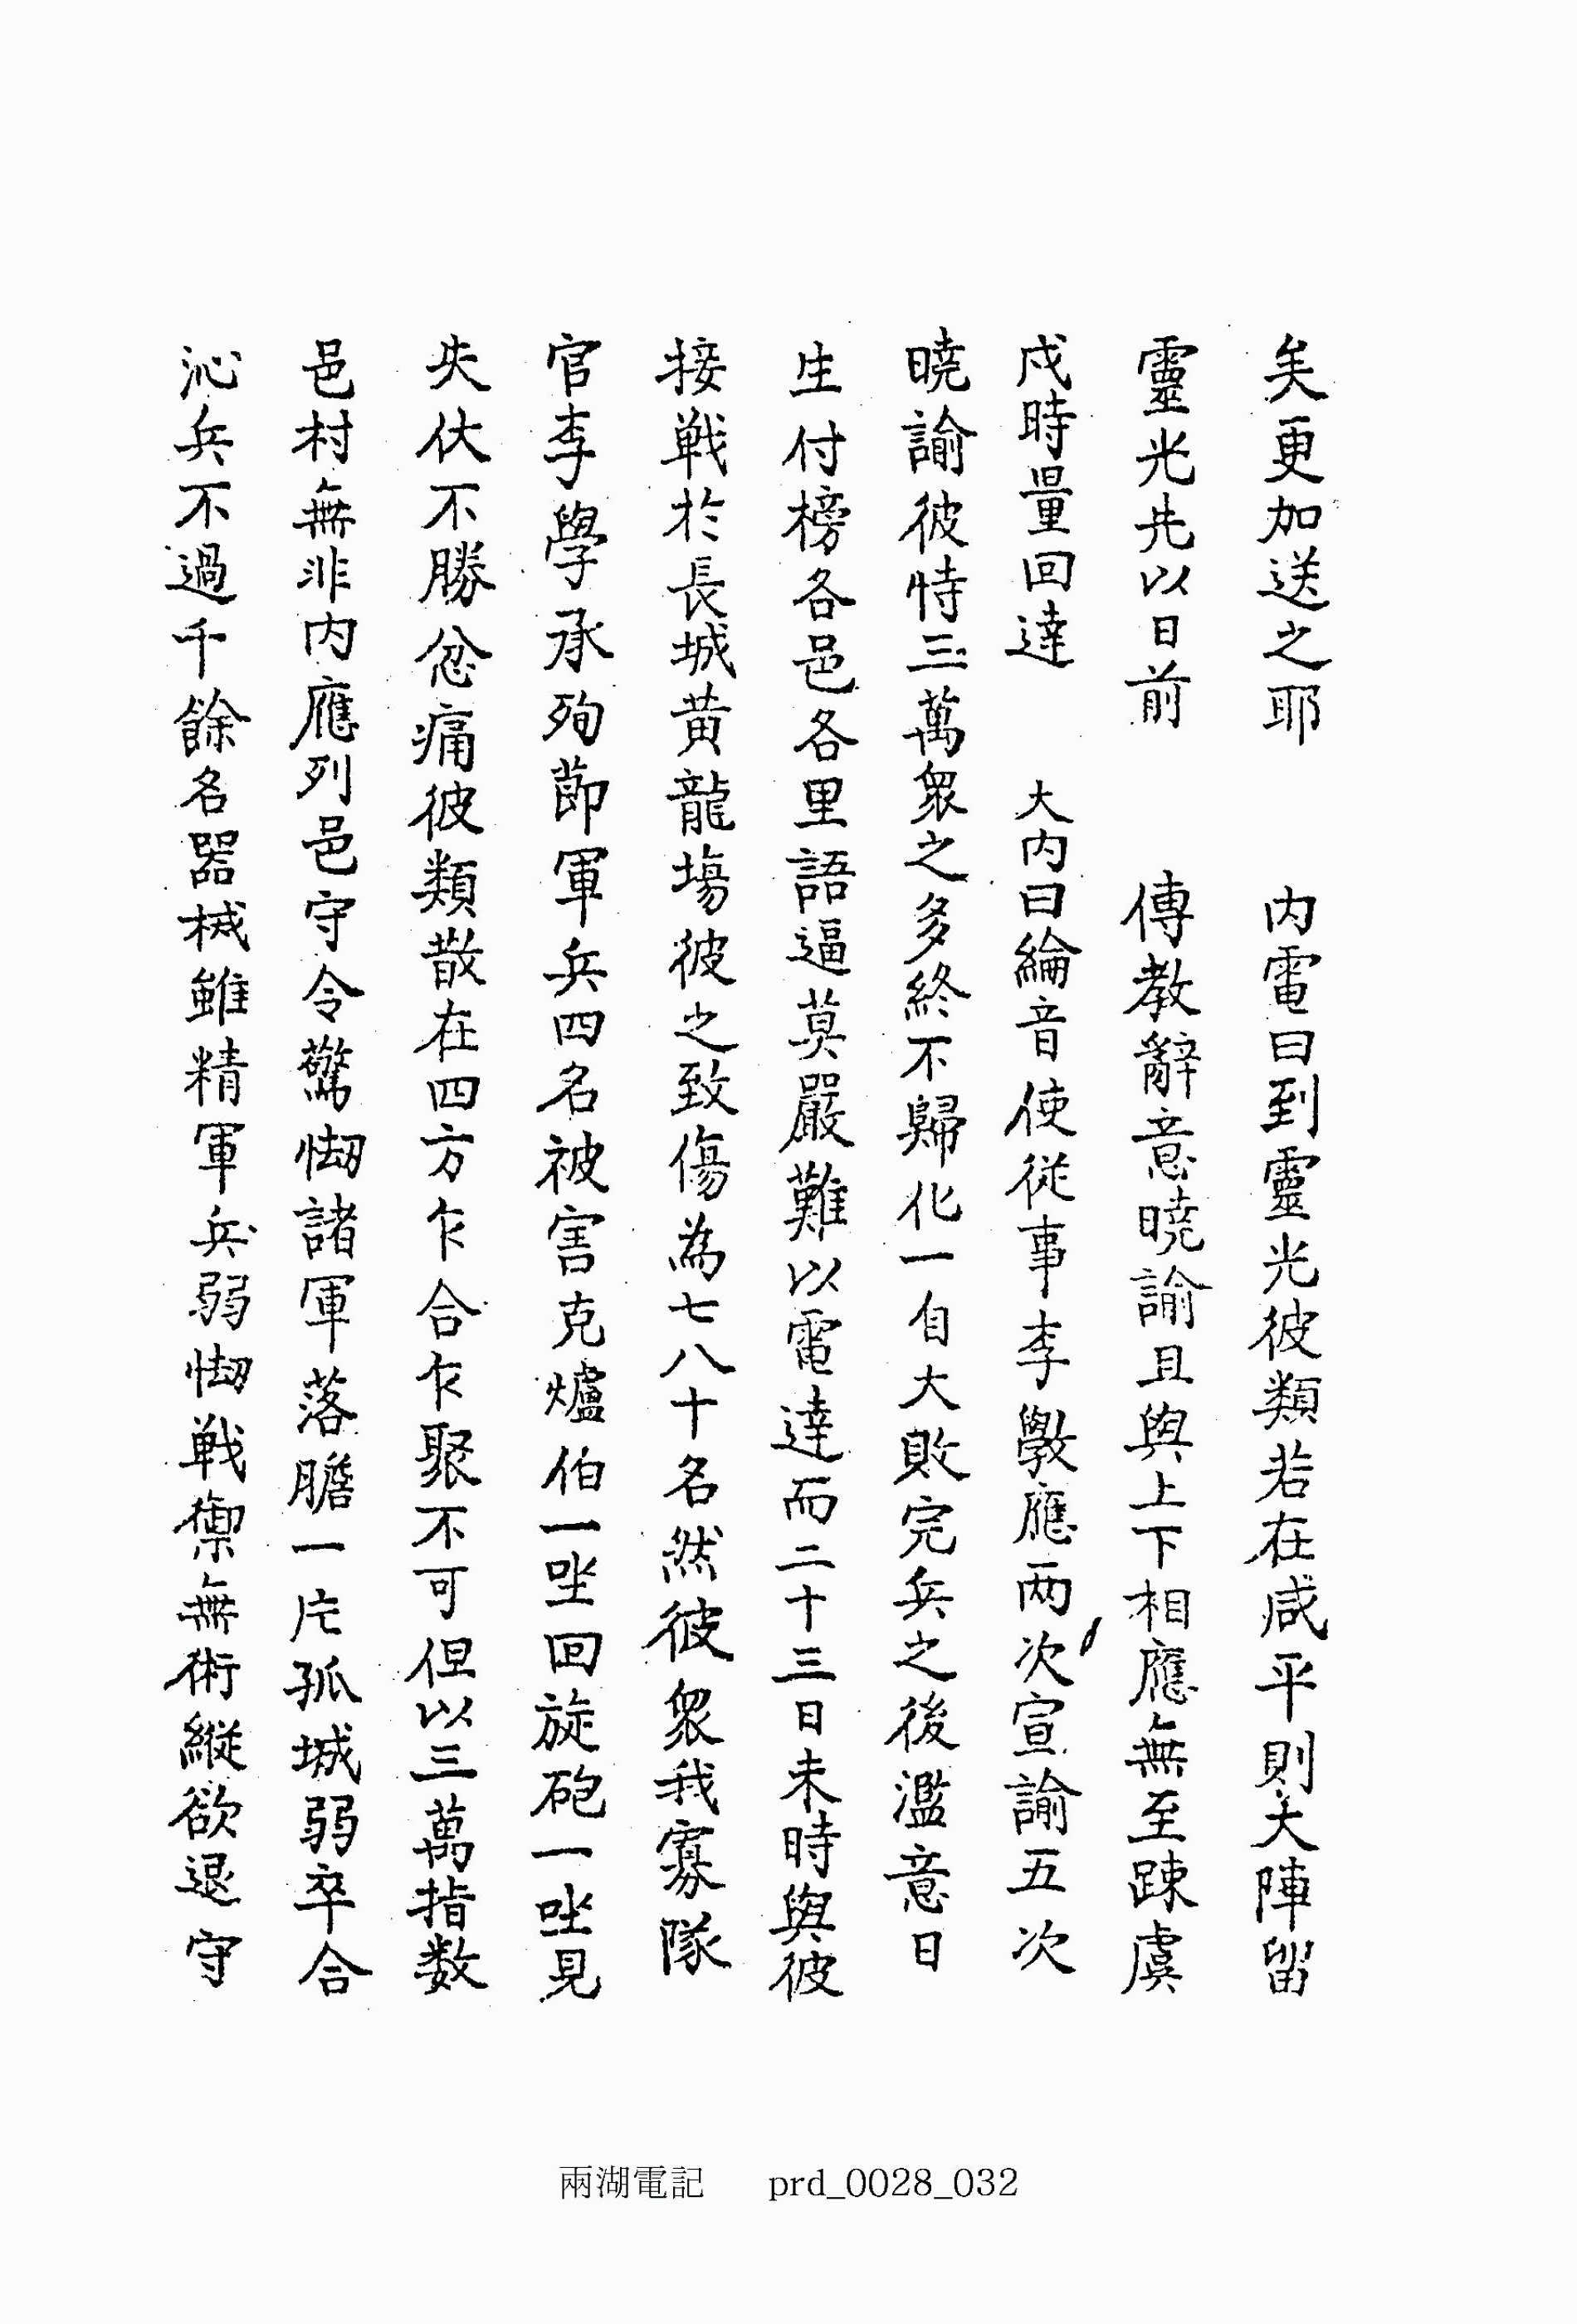 矣更加送之耶 内電曰到靈光彼類若在咸平則大陣留
靈光先以日前 傳教辭意曉諭且與上下相應無至踈虞
戌時量回達 大内曰綸音使從事李斅應两次宣諭五次
曉諭彼恃三萬衆之多終不歸化一自大敗完兵之後濫意日
生付榜各邑各里語逼莫嚴難以電達而二十三日未時與彼
接戦於長城黃龍場彼之致傷為七八十名然彼衆我寡隊
官李學承殉節軍兵四名被害克爐伯一坐回旋砲一坐見
失伏不勝忿痛彼類散在四方乍合乍聚不可但以三萬指数
邑村無非内應列邑守令驚㤼諸軍落膽一片孤城弱卒合
沁兵不過千餘名器械雖精軍兵弱㤼戦禦無術縱欲退守
兩湖電記 prd_0028_032